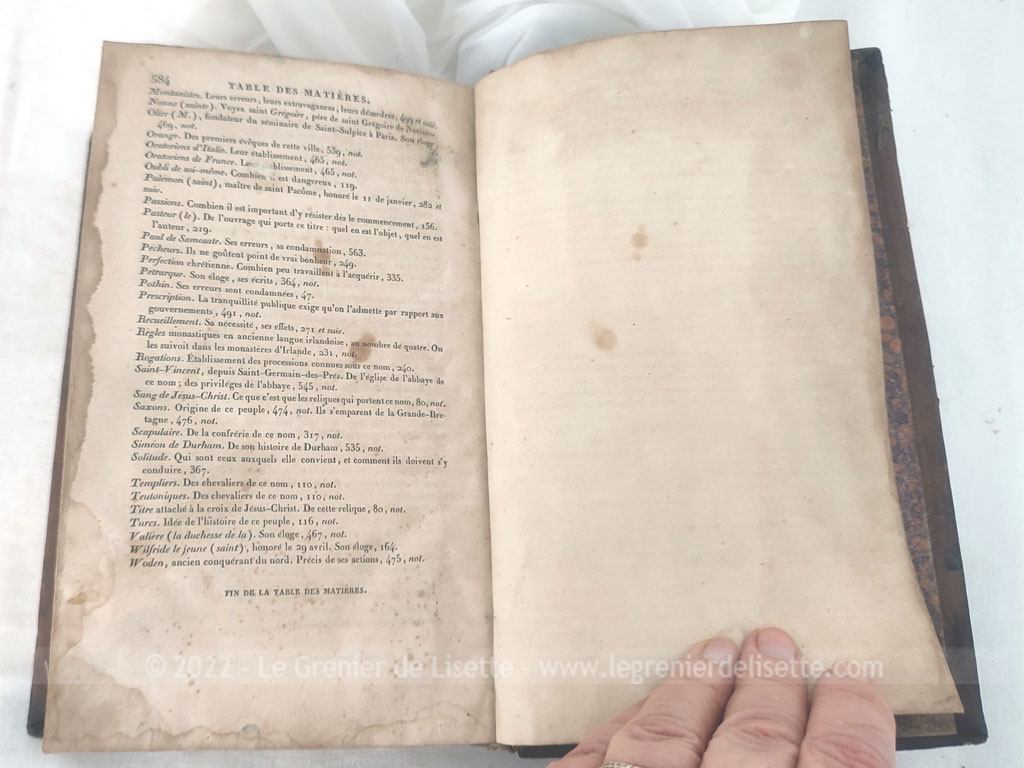 584
TABLE DES MATIÈRES.
Montanistes. Leurs erreurs, leurs extravagances, leurs désordres, 499 et suiv.
Nonne (sainte). Voyez saint Grégoire, père de saint Grégoire de Nazianze
Olier (M.), fondateur du séminaire de Saint-Sulpice à Paris. Son éloge
469, not.
Orange. Des premiers évêques de cette ville, 539, not.
Oratoriens d'Italie. Leur établissement, 465, not.
Oratoriens de France. Le blissement, 465, not.
Oubli de soi-même. Combien il est dangereux, 119.
Palémon (saint), maître de saint Pacôme, honoré le 11 de janvier, 282 et
suiv.
Passions. Combien il est important d'y résister dès le commencement, 156.
Pasteur (le). De l'ouvrage qui porte ce titre: quel en est l'objet, quel en est
l'auteur, 219.
Paul de Samosate. Ses erreurs, sa condamnation, 563.
Pécheurs. Ils ne goûtent point de vrai bonheur, 249.
Perfection chrétienne. Combien peu travaillent à l'acquérir, 335.
Pétrarque. Son éloge, ses écrits, 364, not.
Pothin. Ses erreurs sont condamnées, 47.
Prescription. La tranquillité publique exige qu'on l'admette par rapport aux
gouvernements, 491, not.
Recueillement. Sa nécessité, ses effets, 271 et suiv.
Règles monastiques en ancienne langue irlandoise, au nombre de quatre. On
les suivoit dans les monastères d'Irlande, 231, not.
Rogations. Établissement des processions connues sous ce nom, 240.
Saint-Vincent, depuis Saint-Germain-des-Prés. De l'église de l'abbaye de
ce nom; des priviléges de l'abbaye, 545, not.
Sang de Jésus-Christ. Ce que c'est que les reliques qui portent ce nom, 80, not.
Saxons. Origine de ce peuple, 474, not. Ils s'emparent de la Grande-Bre-
tagne, 476, not.
Scapulaire. De la confrérie de ce nom, 317, not.
Siméon de Durham. De son histoire de Durham, 535, not.
Solitude. Qui sont ceux auxquels elle convient, et comment ils doivent s'y
conduire, 367.
Templiers. Des chevaliers de ce nom, 110, not.
Teutoniques. Des chevaliers de ce nom, 110, not.
Titre attaché à la croix de Jésus-Christ. De cette relique, 80, not.
Turcs. Idée de l'histoire de ce peuple, 116, not.
Valière (la duchesse de la). Son éloge, 467, not.
Wilfride le jeune (saint), honoré le 29 avril. Son éloge, 164.
Woden, ancien conquérant du nord. Précis de ses actions, 475, not.
FIN DE LA TABLE DES MATIÈRES.
© 2022 - Le Grenier de Lisette - www.legrenierdelisette.com